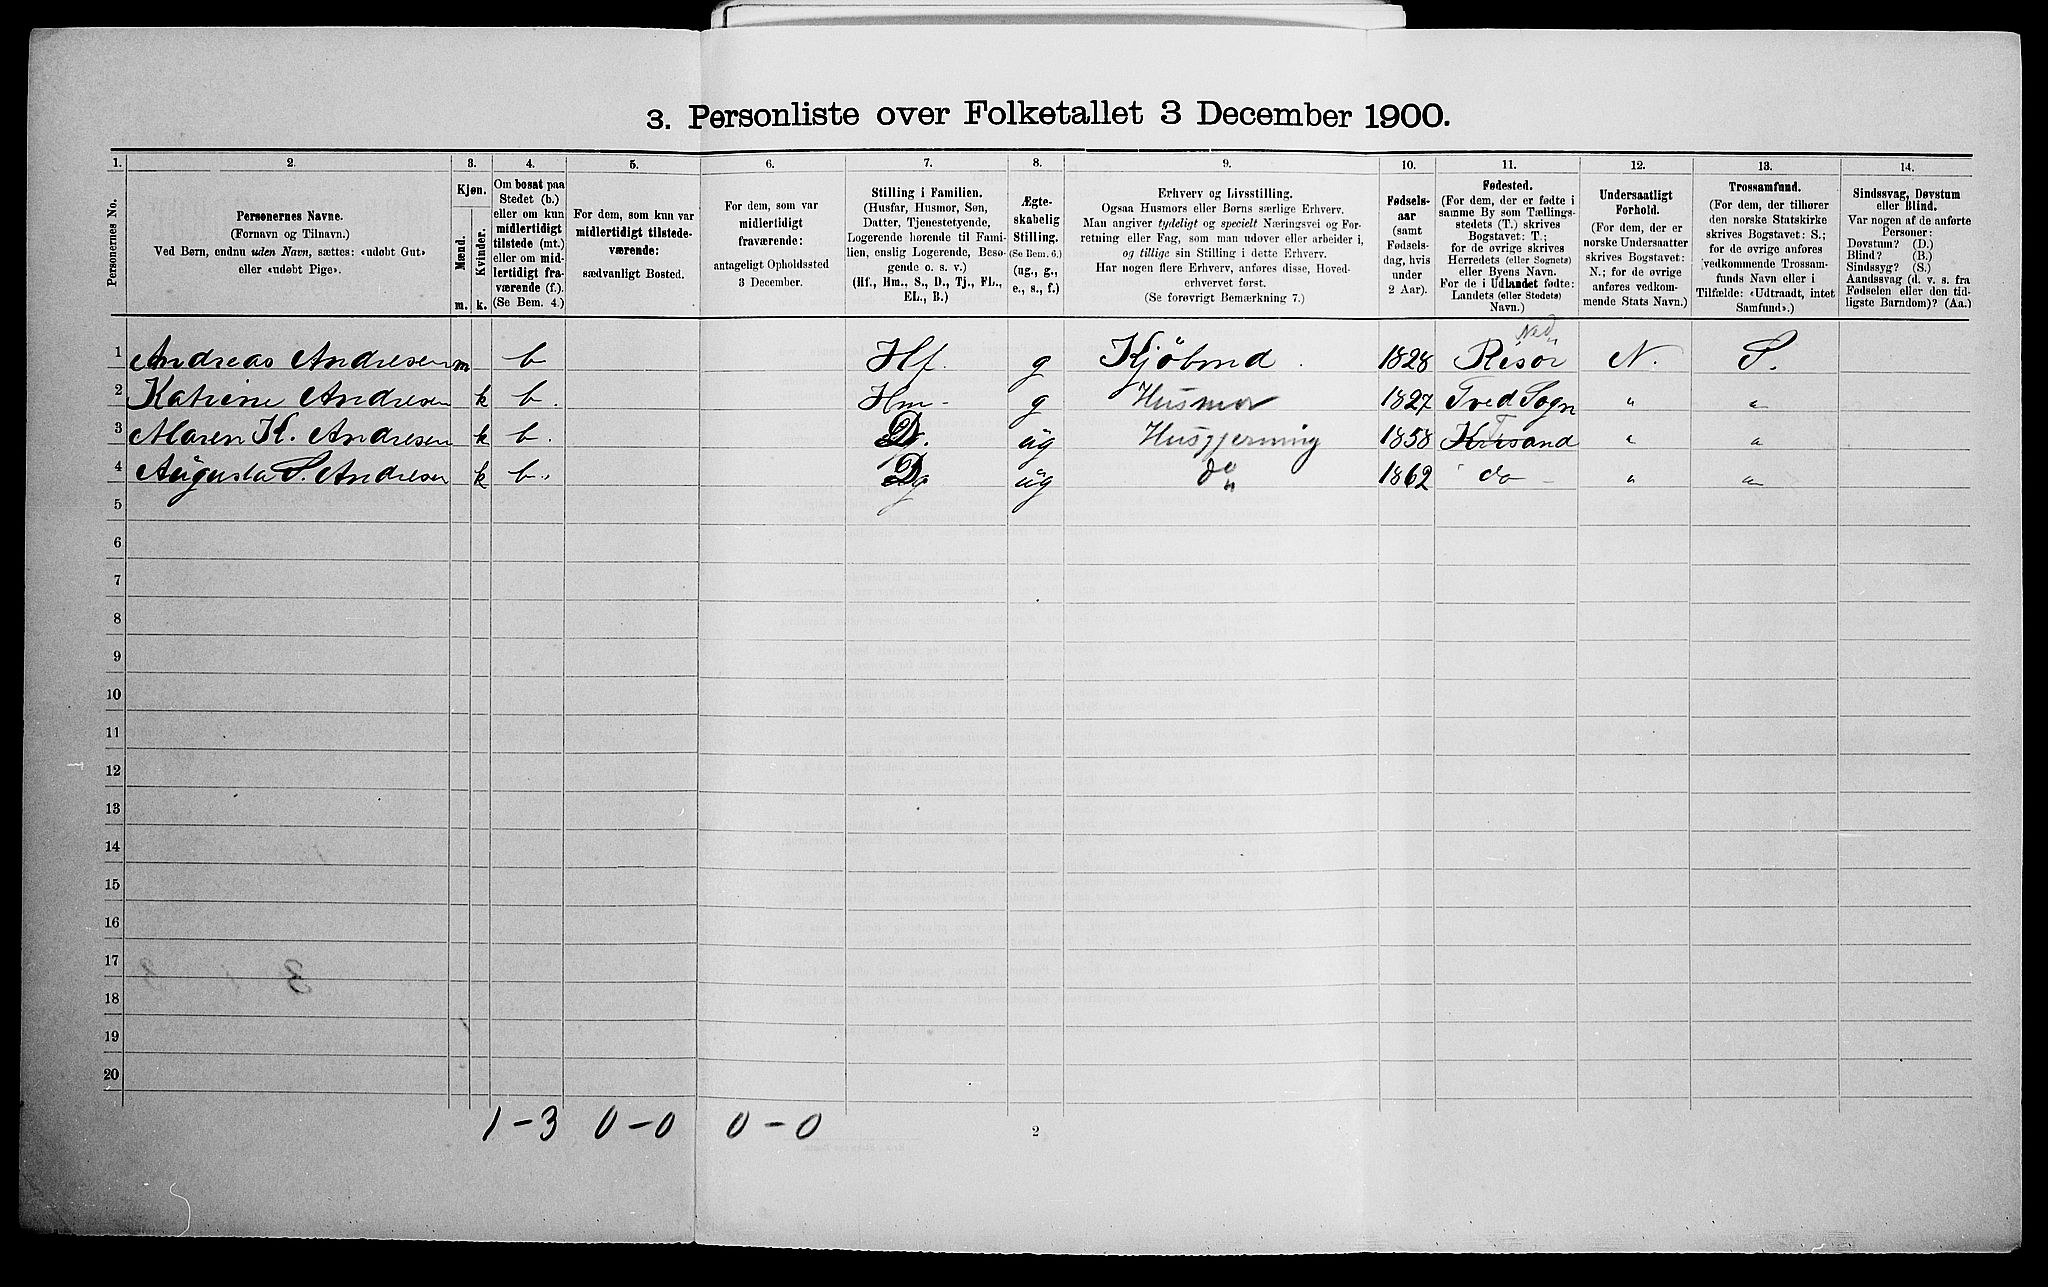 3. Personliste over Folketallet 3 December 1900.
1. 2. 3. 4. 5. 6. 7. 8. 9. 10. 11. 12. 13. 14.
Personernes No.
Personernes Navne.
(Fornavn og Tilnavn.)
Ved Børn, endnu uden Navn, sættes: «udøbt Gut»
eller «udøbt Pige».
Kjøn.
Mænd.
Kvinder.
m. k.
Om bosat paa
Stedet (b.)
eller om kun
midlertidigt
tilstede (mt.)
eller om mid-
lertidigt fra-
værende (f.).
(Se Bem. 4.)
For dem, som kun var
midlertidigt tilstede-
værende:
sædvanligt Bosted.
For dem, som var
midlertidigt
fraværende:
antageligt Opholdssted
3 December.
Stilling i Familien.
(Husfar, Husmor, Søn,
Datter, Tjenestetyende,
Logerende hørende til Fami-
lien, enslig Logerende, Besø-
gende o. s. v.)
(Hf., Hm., S., D., Tj., FL.,
EL., B.)
Ægte-
skabelig
Stilling.
(Se Bem. 6.)
(ug., g.,
e., s., f.)
Erhverv og Livsstilling.
Ogsaa Husmors eller Børns særlige Erhverv.
Man angiver tydeligt og specielt Næringsvei og For-
retning eller Fag, som man udøver eller arbeider i,
og tillige sin Stilling i dette Erhverv.
Har nogen flere Erhverv, anføres disse, Hoved-
erhvervet først.
(Se forøvrigt Bemærkning 7.)
Fødsels-
aar
(samt
Fødsels-
dag, hvis
under
2 Aar).
Fødested.
(For dem, der er fødte i
samme By som Tællings-
stedets (T.) skrives
Bogstavet: T.;
for de øvrige skrives
Herredets (eller Sognets)
eller Byens Navn.
For de i Udlandet fødte:
Landets (eller Stedets)
Navn.)
Undersaatligt
Forhold.
(For dem, der er
norske Undersaatter
skrives Bogstavet:
N.; for de øvrige
anføres vedkom-
mende Stats Navn.)
Trossamfund.
(For dem, der tilhører
den norske Statskirke
skrives Bogstavet: S.;
for de øvrige anføres
vedkommende Trossam-
funds Navn eller i
Tilfælde: «Udtraadt, intet
Samfund».)
Sindssvag, Døvstum
eller Blind.
Var nogen af de anførte
Personer:
Døvstum? (D.)
Blind? (B.)
Sindssyg? (S.)
Aandssvag (d. v. s. fra
Fødselen eller den tid-
ligste Barndom)? (Aa.)
Ned
1 Andreas Andresen m b Hf. g Kjöbmd. 1828 Risör N. S.
2 Katrine Andresen k b. Hm- g Husmor 1827 Tved Sogn " "
3 Maren K. Andresen k b. D. ug Husgjerning 1858 Krsand T " "
4 Augusta S. Andresen k b. D ug do 1862 do - " "
5
6
7
8
9
10
11
12
13
14
15
16
17
18
19
20
1-3 0-0 0-0
2